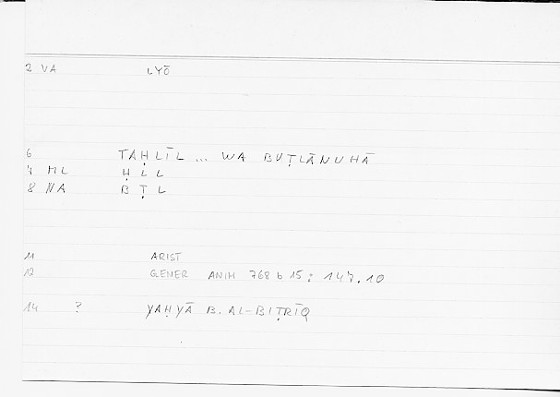 2 VA LYŌ
6 TAḤLĪL ... WA BUṬLĀNUHĀ
7 ML ḤLL
8 NA BṬL
11 ARIST
12 GENER ANIM 768 b 15 : 147.10
14 ? YAḤYĀ B. AL-BIṬRĪQ